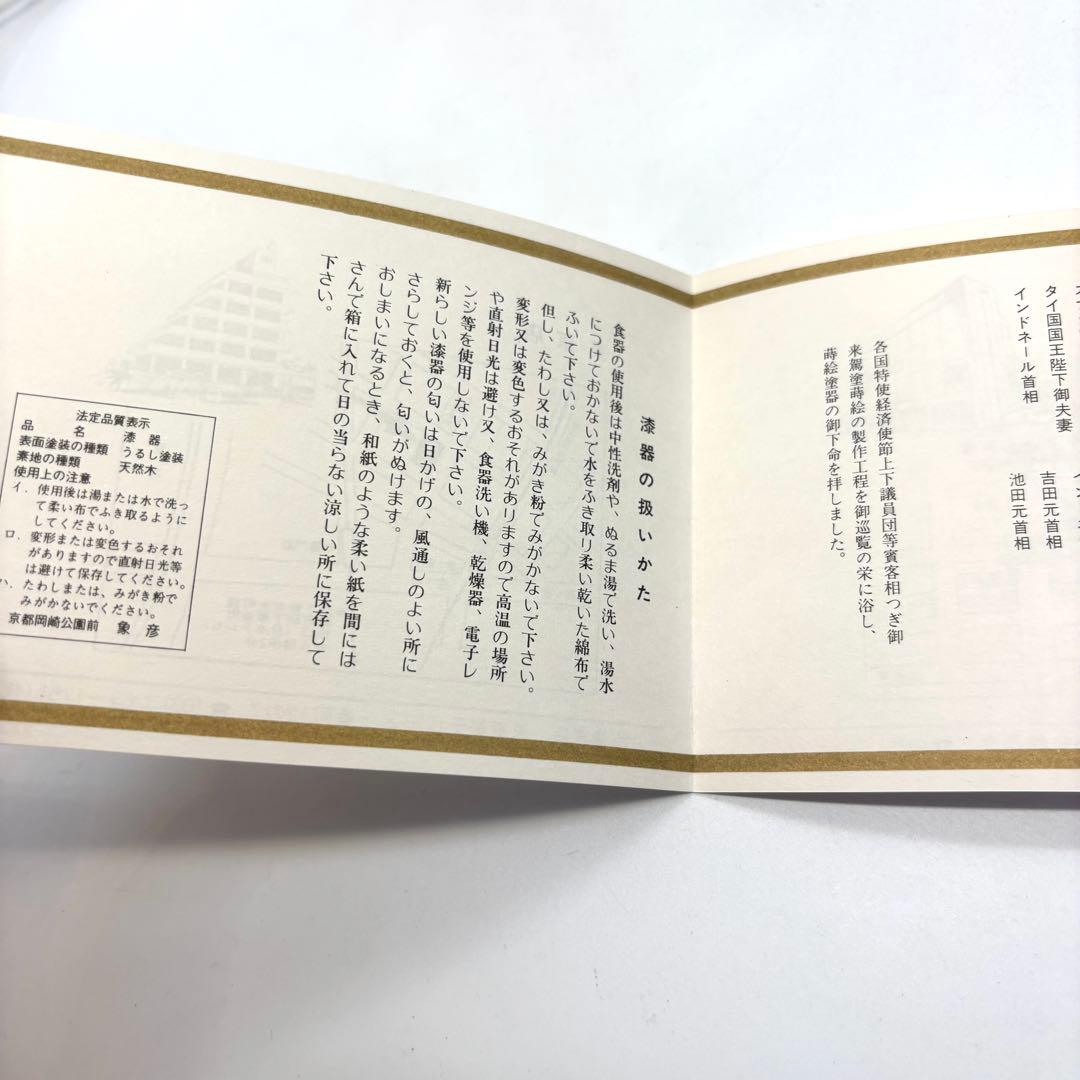 タイ国国王陛下御夫妻
インドネール首相
吉田元首相
池田元首相
各国特使経済使節上下議員団等賓客相つぎ御
来駕塗蒔絵の製作工程を御巡覧の栄に浴し、
蒔絵塗器の御下命を拝しました。
漆器の扱いかた
食器の使用後は中性洗剤や、ぬるま湯で洗い、湯水
につけておかないで水をふき取り柔い乾いた綿布で
ふいて下さい。
但し、たわし又は、みがき粉でみがかないで下さい。
変形又は変色するおそれがありますので高温の場所
や直射日光は避け又、食器洗い機、乾燥器、電子レ
ンジ等を使用しないで下さい。
新らしい漆器の匂いは日かげの、風通しのよい所に
さらしておくと、匂いがぬけます。
おしまいになるとき、和紙のような柔い紙を間には
さんで箱に入れて日の当らない涼しい所に保存して
下さい。
法定品質表示
品名 漆器
表面塗装の種類 うるし塗装
素地の種類 天然木
使用上の注意
イ．使用後は湯または水で洗っ
て柔い布でふき取るように
してください。
ロ．変形または変色するおそれ
がありますので直射日光等
は避けて保存してください。
ハ．たわしまたは、みがき粉で
みがかないでください。
京都岡崎公園前 象彦